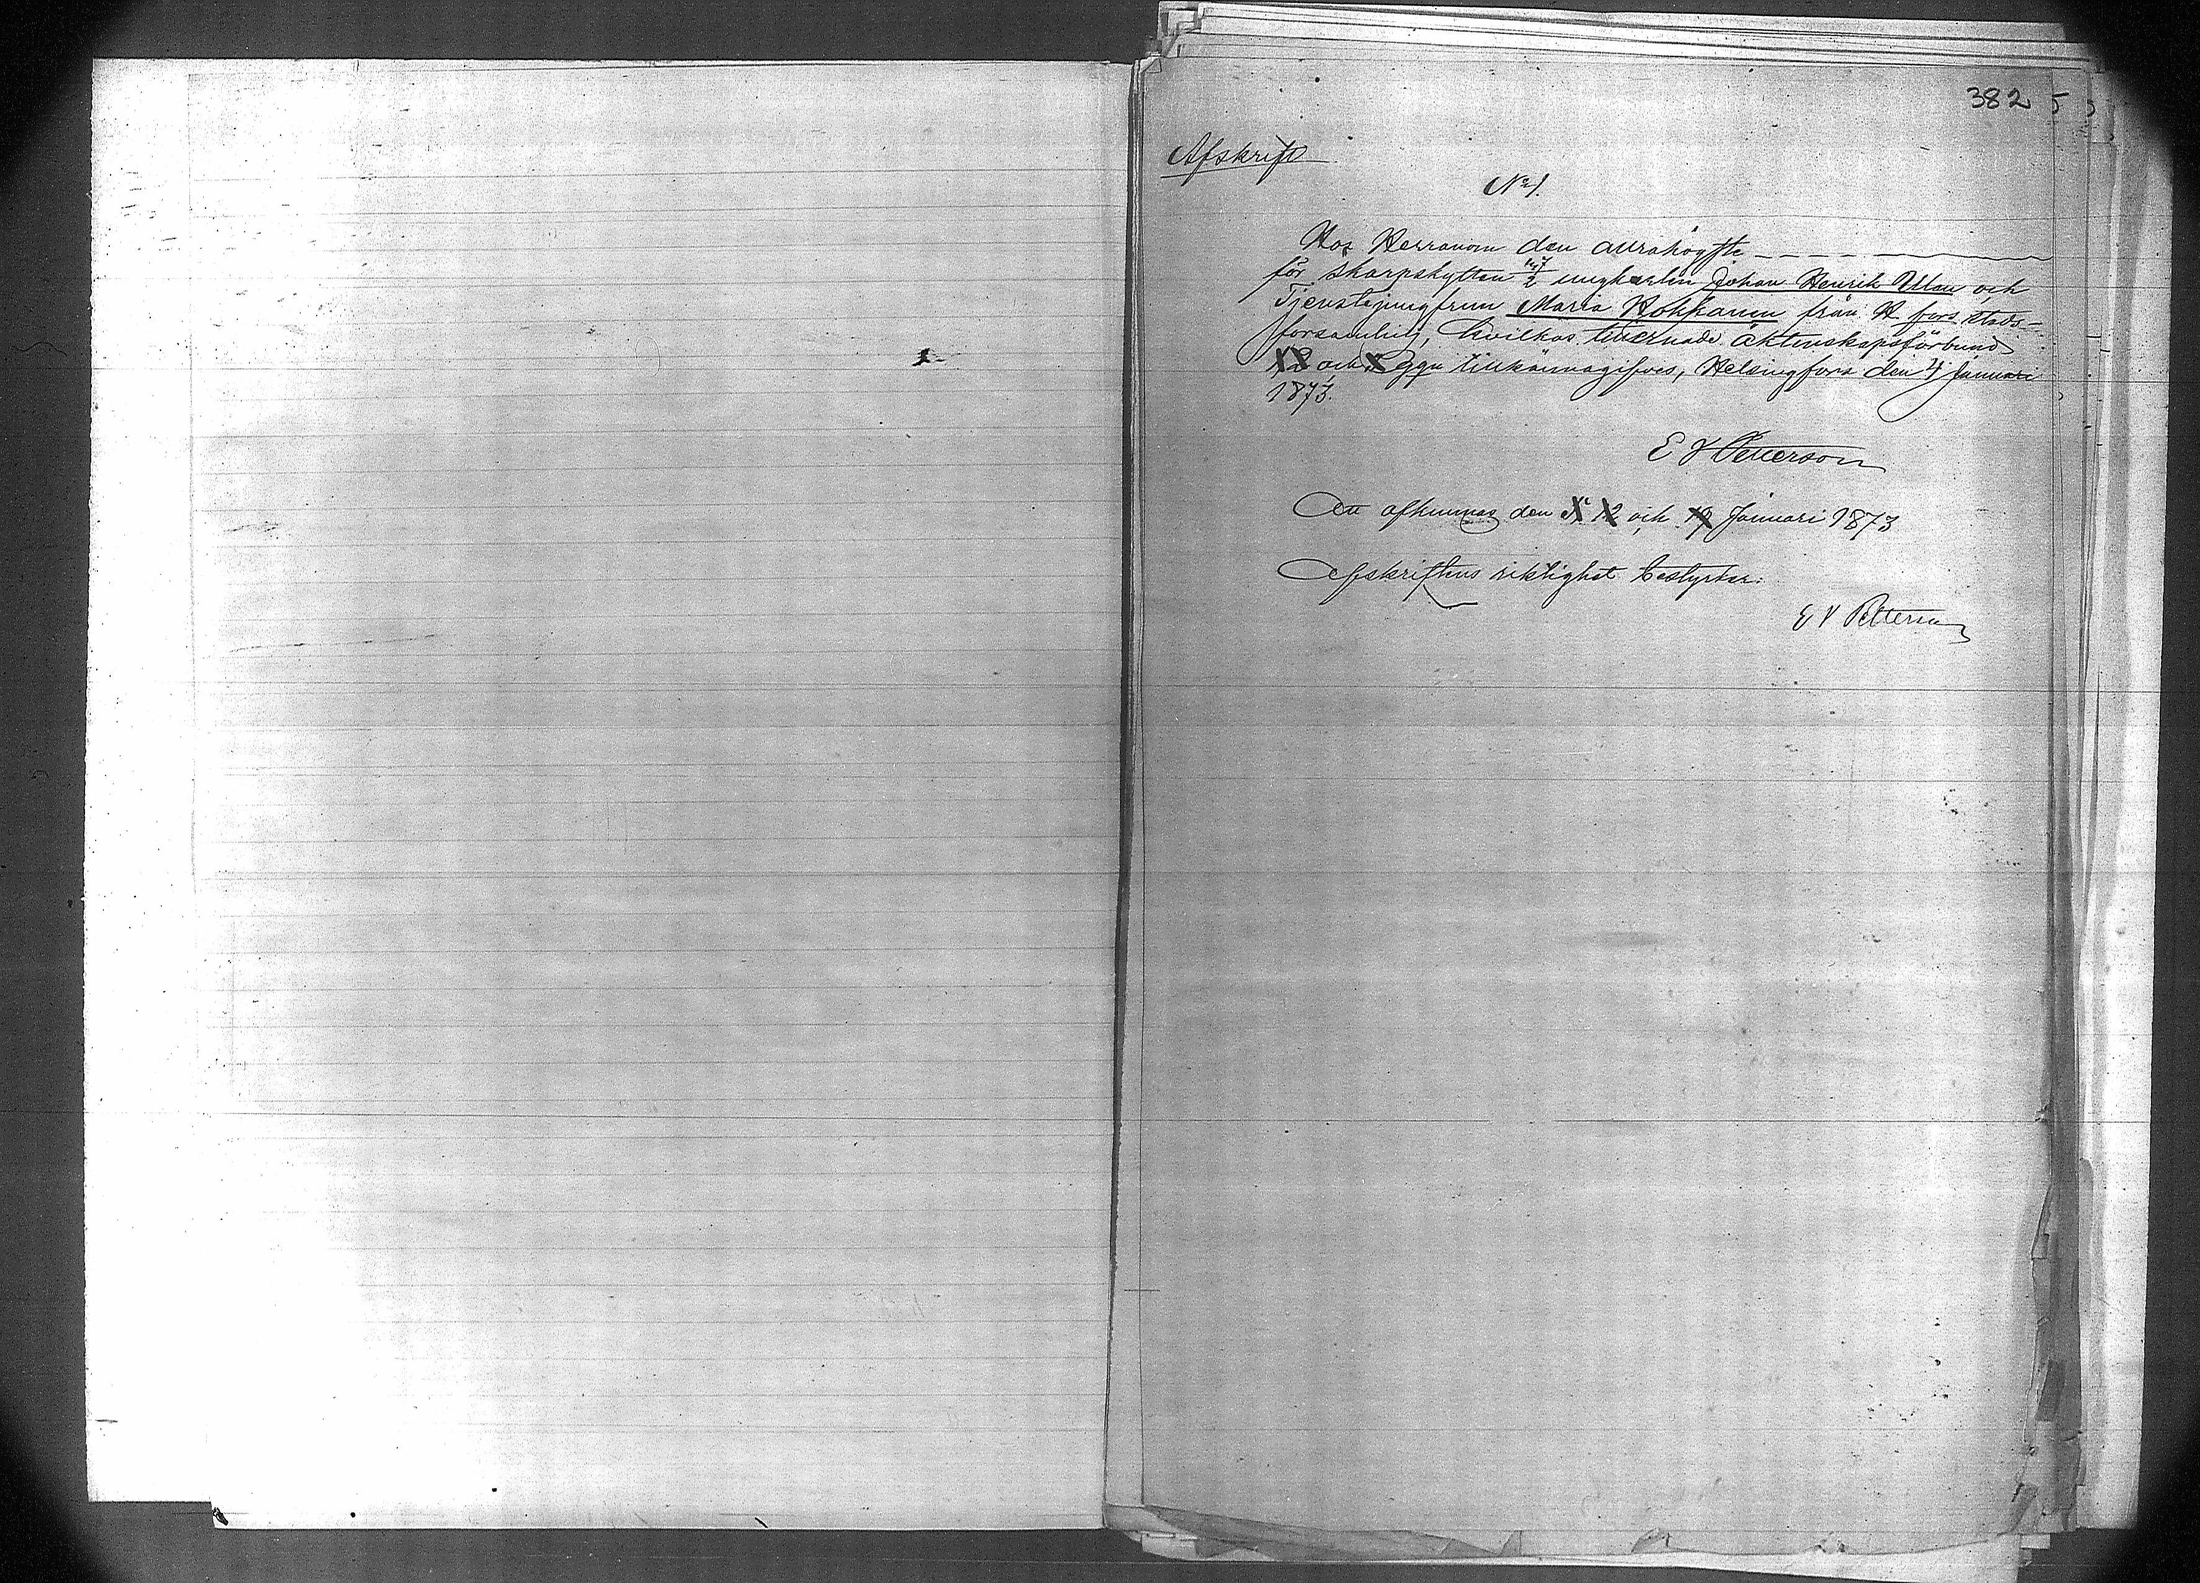 382
Afskrift
No 1.
Hos Herranom den aurahögste
för skarpskytten 147/2 ungkarlen Johan Henrik Ullan och
Tjenstejungfrun Maria Hokkanen från H fors stads-
församling, hvilkas tillernade äktenskapsförbund
och ggn tillkännagifves, Helsingfors den 4 Januari
1873.
E V Petterson
Att afkunnas den 12 och 19 Januari 1873
Afskriftens riktighet bestyrker:
E V Petterson